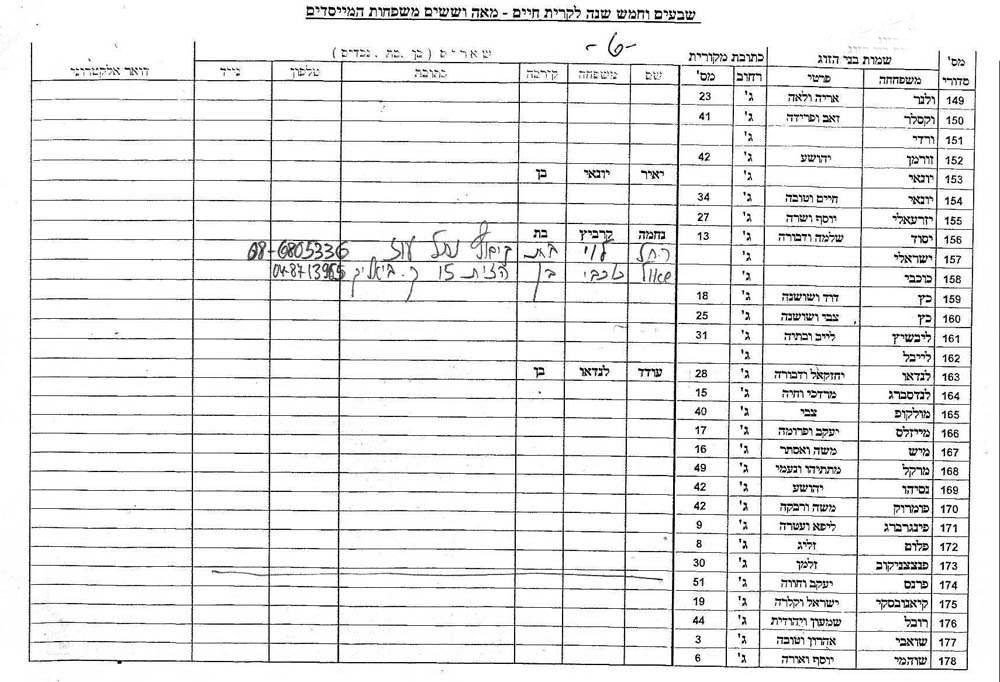 שבעים וחמש שנה לקרית חיים - מאה וששים משפחות המייסדים
-6-
מס' סדורי שמות בני הזוג כתובת מקורית שארים ( בן .בת . נכדים )
משפחחה פרטי רחוב מס' שם משפחה קירבה כתובת טלפון נייד דואר אלקטרוני
149 ולנר אריה ולאה ג' 23
150 וקסלר זאב ופרידה ג' 41
151 ורדי ג'
152 זורמן יהושע ג' 42
153 יונאי ג' יאיר יונאי בן
154 יונאי חיים וטובה ג' 34
155 יזרעאלי יוסף ושרה ג' 27
156 יסוד שלמה ודבורה ג' 13 נחמה קרביץ בת
157 ישראלי ג' רחל לוי בת קיבוץ נחל עוז 08-6805336
158 כוכבי ג' שאול כוכבי בן 15 ק. ביאליק
159 כץ דוד ושושנה ג' 18
160 כץ צבי ושושנה ג' 25
161 ליבשיץ לייב ובתיה ג' 31
162 לייבל ג'
163 לנדאו יחזקאל ודבורה ג' 28 עודד לנדאו בן
164 לנדסברג מרדכי וחיה ג' 15
165 מולקופ צבי ג' 40
166 מייזלס יעקב ופרומה ג' 17
167 מיש משה ואסתר ג' 16
168 מרקל מתתיהו ונעמי ג' 49
169 נסיהו יהושע ג' 42
170 פומרוק משה ורבקה ג' 42
171 פינגרברג ליפא ועטרה ג' 9
172 פלום זליג ג' 8
173 פנצצניקוב זלמן ג' 30
174 פרנס יעקב וחווה ג' 51
175 קיאנובסקי ישראל וקלרה ג' 19
176 רובל שמעון ויהודית ג' 44
177 שואבי אהרון וטובה ג' 3
178 שוהמי יוסף ואורה ג' 6